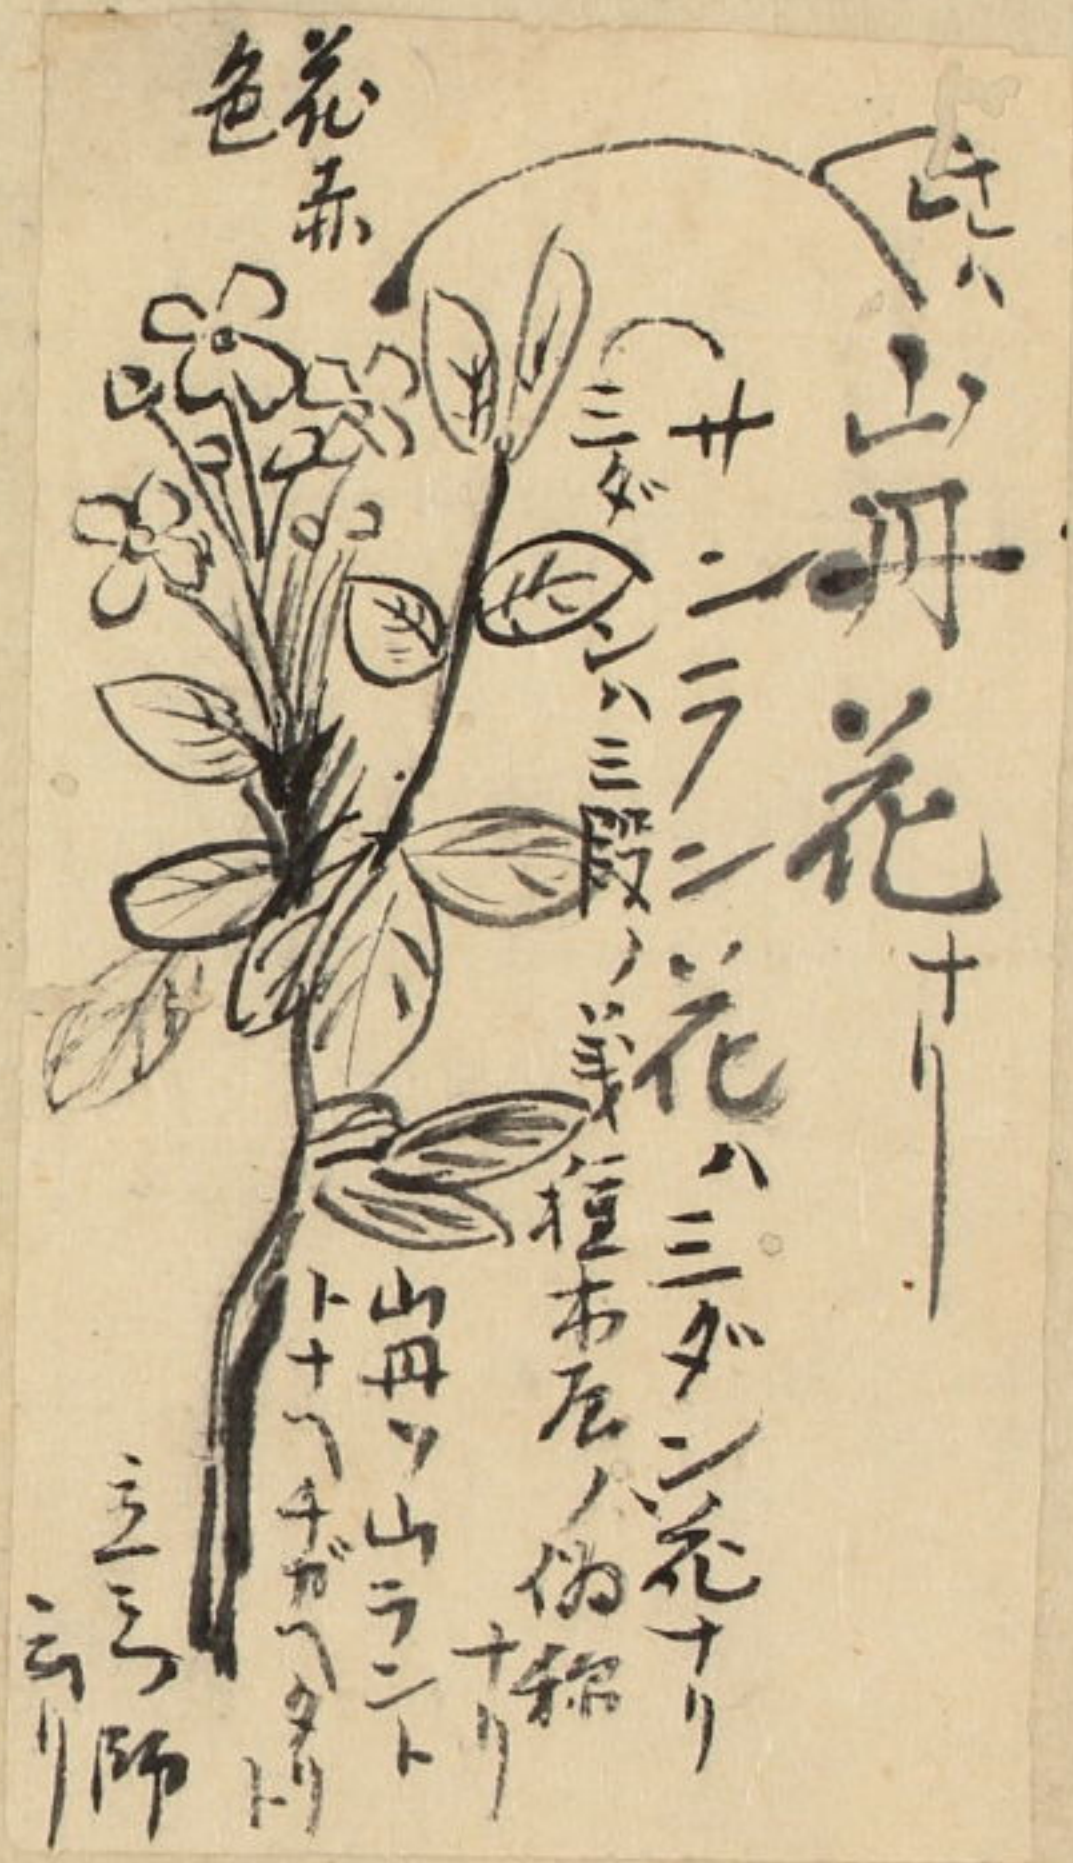 此ハ山丹花ナリ
サンラン花ハ三ダン花ナリ
三ダンハ三段ノ義種木屋ノ偽称
ナリ
山丹ヲ山ラント
トナヘチガヘタリ
ト
立三師
云リ
花赤
色